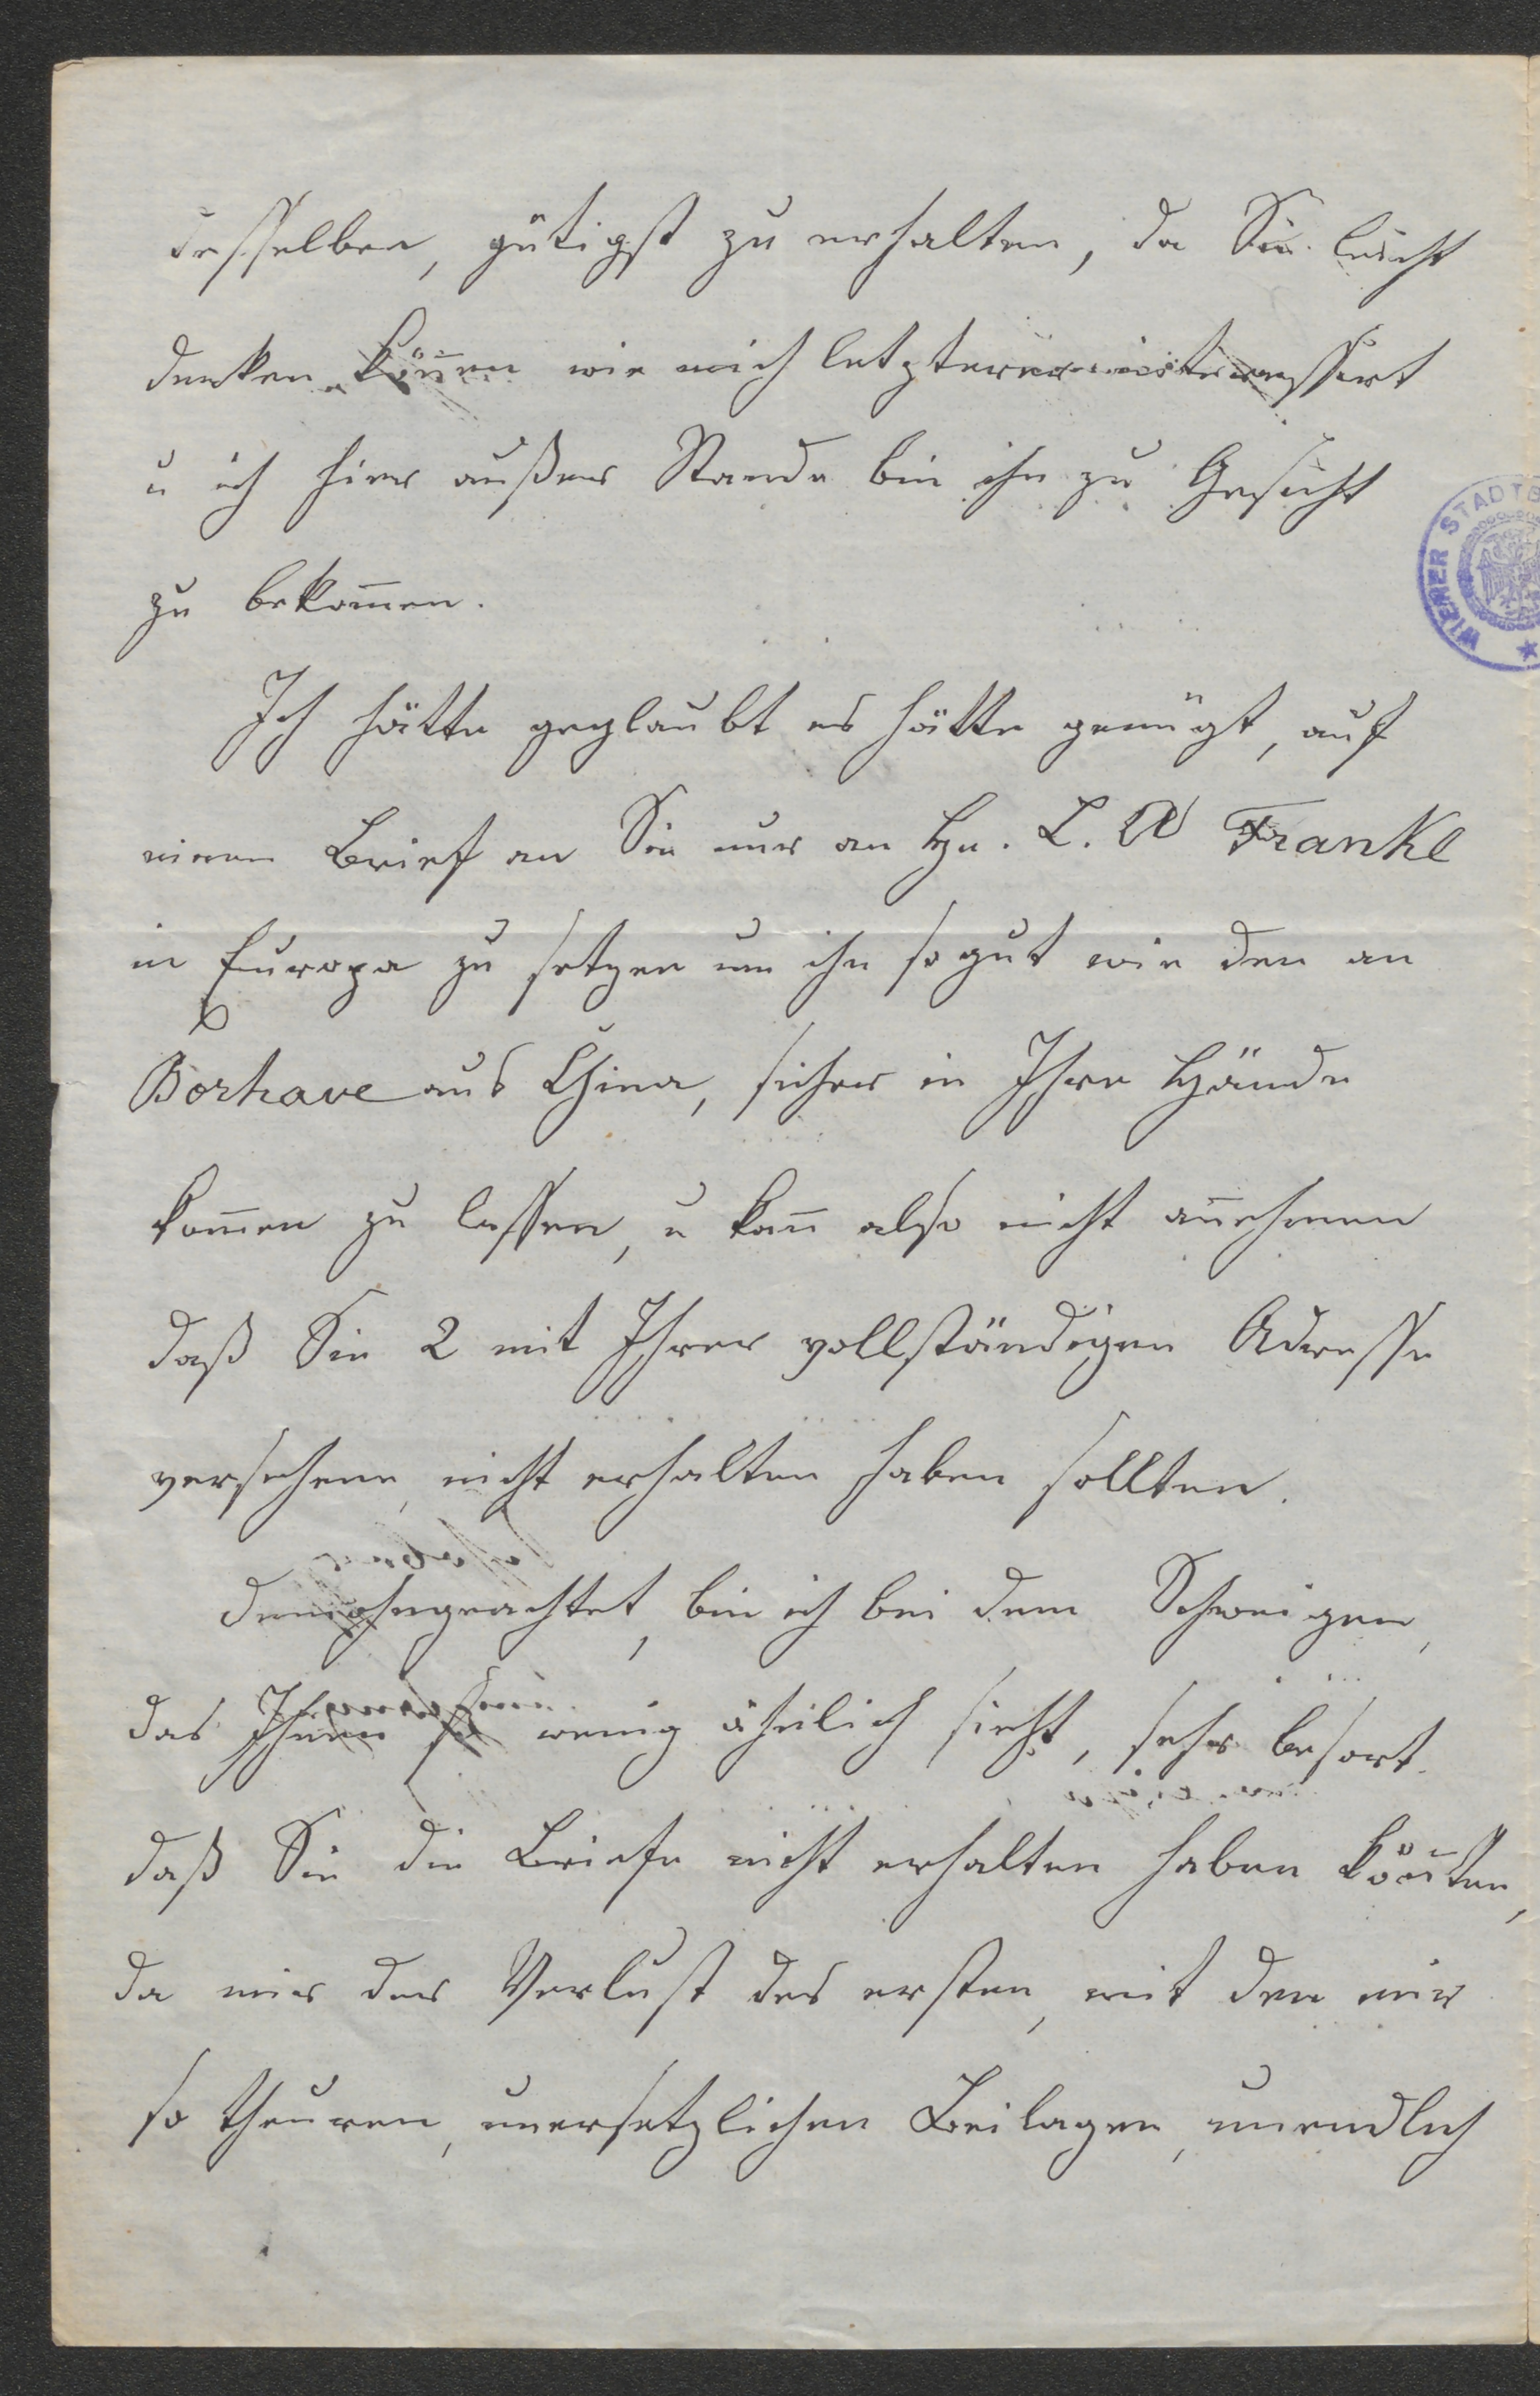 desselben, gütigst zu erhalten, da Sie leicht
denken kön̄en wie mich letzterer interressirt
u ich hier außer Stande bin ihn zu Gesicht
zu bekom̄en.
Ich hätte geglaubt es hätte genügt, auf
einen Brief an Sie nur an Hn. L. A Frankl
in Europa zu setzen um ihn so gut wie den an
Börhave aus China, sicher in Ihre Hände
kom̄en zu lassen, u kan̄ also nicht an̄ehmen
daß Sie 2 mit Ihrer vollständigen Adresse
versehene, nicht erhalten haben sollten.
Demohngeachtet, bin ich bei dem Schweigen,
das Ihnen so wenig ähnlich sieht, sehr besort
daß Sie die Briefe nicht erhalten haben kön̄ten,
da mir der Verlust des ersten, mit den mir
so theuren, unersetzlichen Beilagen, unendlich
WIENER STADTB